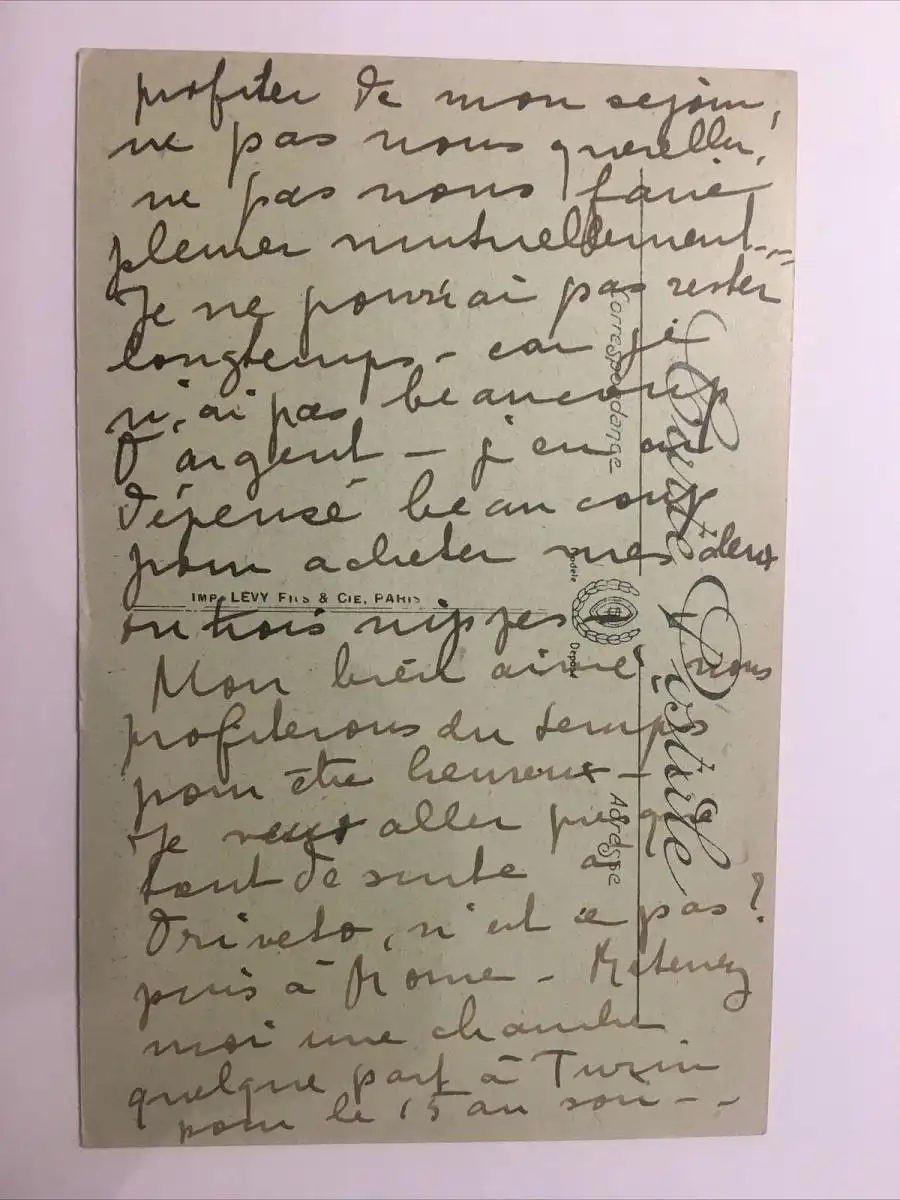 profiter de mon sejour,
ne pas nous quereller,
ne pas nous faire
pleurer mutuellement---
Je ne pourrai pas rester
longtemps - car je
n'ai pas beaucoup
d'argent - j'en ai
dépensé beaucoup
pour acheter mes deux
ou trois nippes
Mon bien aimé nous
profiterons du temps
pour être heureux -
Je veux aller presque
tout de suite à
Oriveto, n'est ce pas?
puis à Rome - Retenez
moi une chambre
quelque part à Turin
pour le 15 au soir - -
Carte Postale
Correspondance
Adresse
Modèle
Déposé
IMP. LÉVY FILS & CIE, PARIS